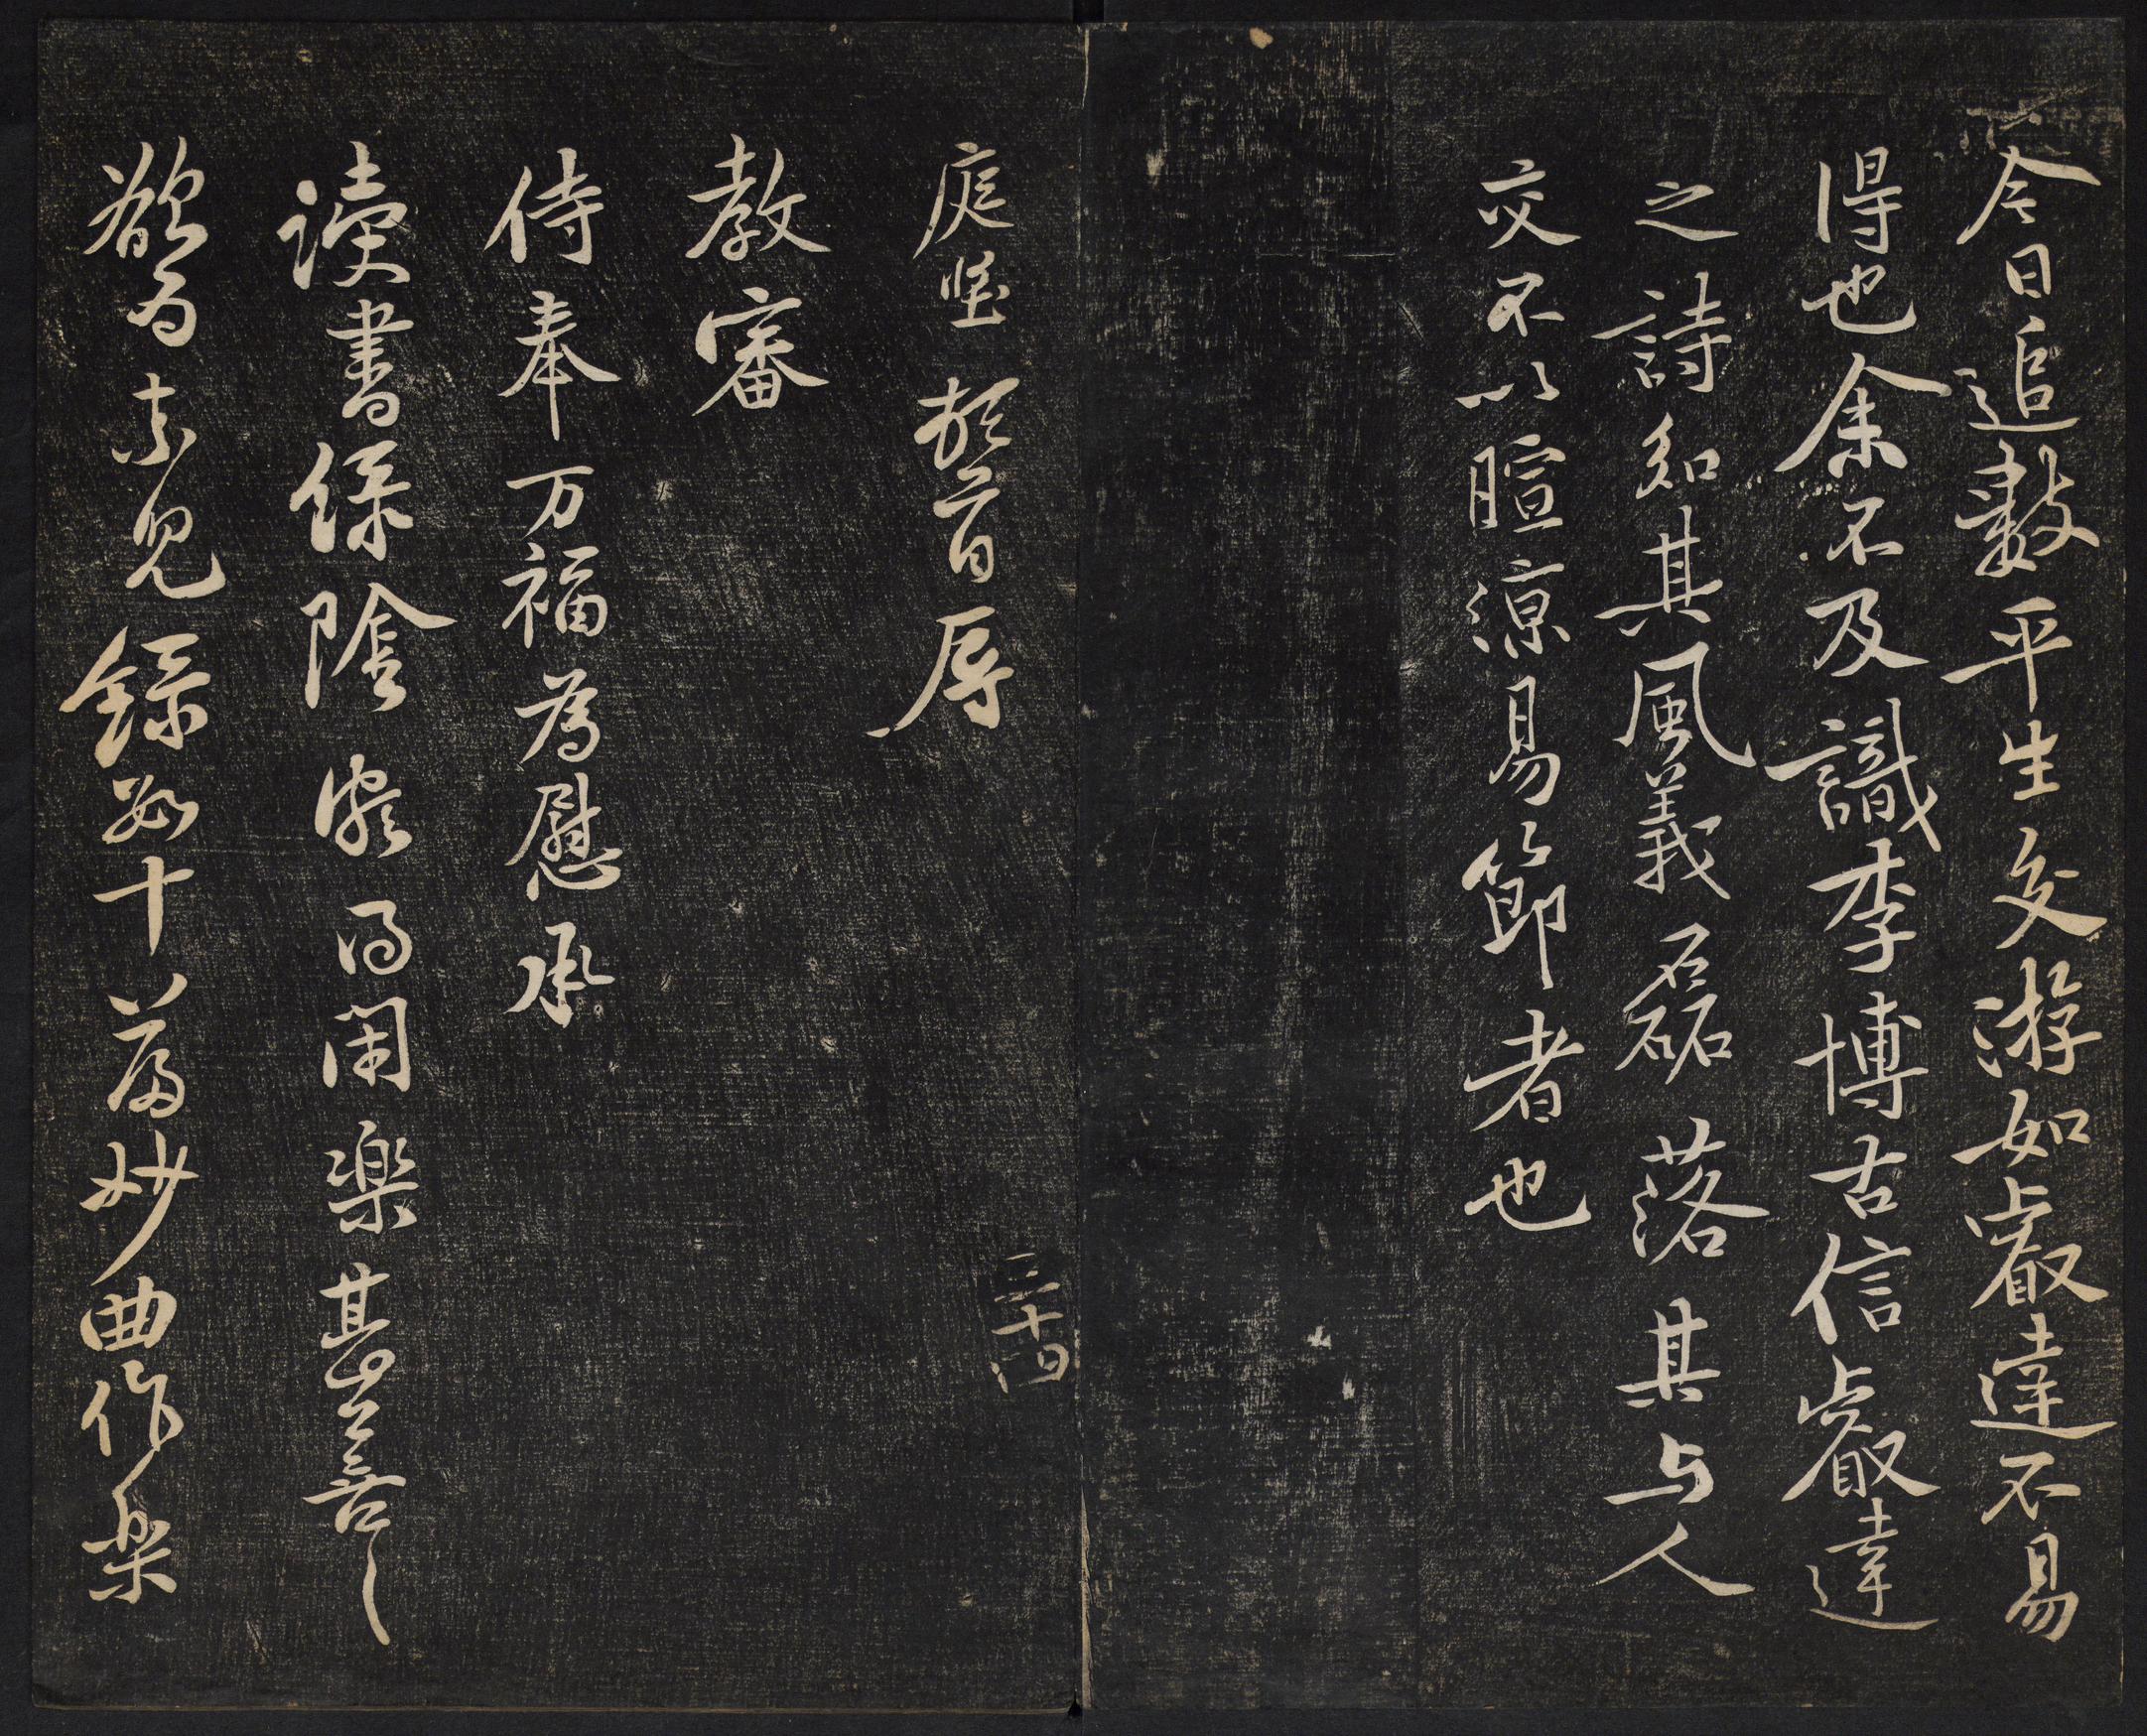 今日追數平生交游如叡達不易
得也余不及識李博古信叡達
之詩知其風義磊落其与人
交不以暄涼易節者也
三十四
庭堅頓首辱
教審
侍奉万福為慰承
讀書綠陰頗得閑樂甚善〻
欲為索兒錄數十篇妙曲作樂